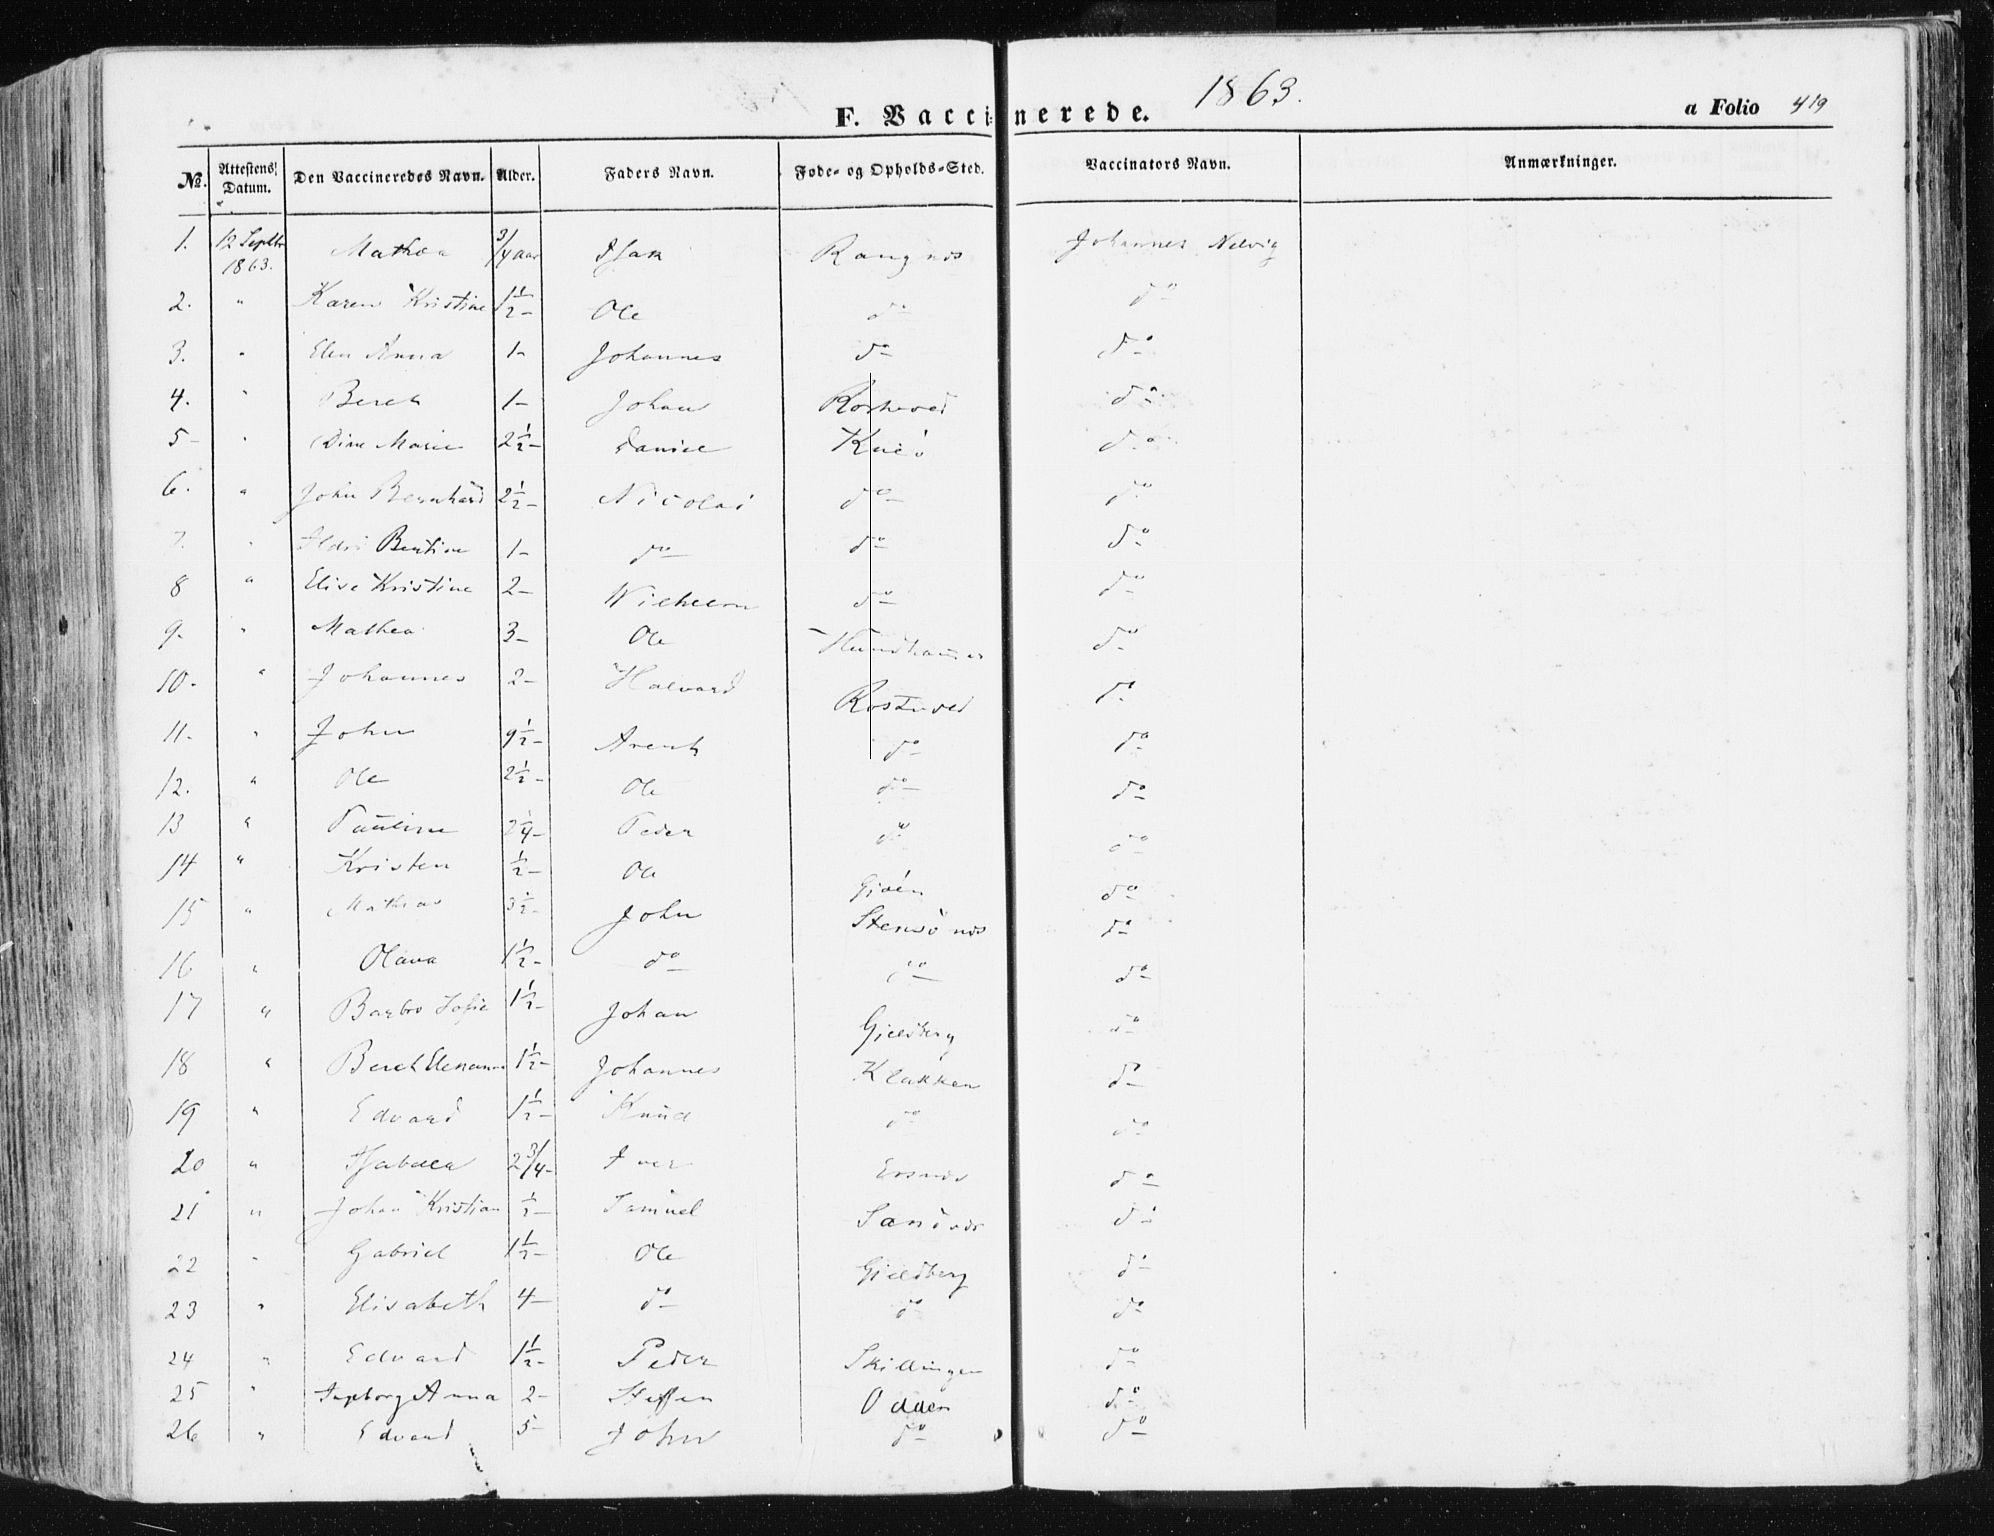 F. Vaccinerede. 1863. a Folio 419
No. Attestens Datum. Den Vaccineredes Navn. Alder. Faders Navn. Føde- og Opholds-Sted. Vaccinators Navn. Anmærkninger.
1. 12 Septbr 1863. Mathea 3/4 aar Isak Rangnæs Johannes Nelvig
2. " Karen Kristine 1 1/2 - Ole do do
3. " Elen Anna 1 - Johannes do do
4. " Bereth 1 - Johan do
5 - " Dine Marie 2 1/2 - Daniel do
6. " John Bernhard 2 1/2 - Nicolai do do
7. " Bentine 1 - do do do
8 " Elise Kristine 2 - Wilhelm do do
9 - " Mathea 3 - Ole Hundhammer do
10 - " Johannes 2 - Halvard Rostuved do
11 - " John 9 1/2 - Arent do do
12. " Ole 2 1/2 - Ole do do
13 " Pauline 2 1/4 - Peder do do
14 " Kristen 1/2 - Ole Gjøén do
15 " Mathias 3 1/2 - John Stensönæs do
16 " Olava 1 1/2 - do do do
17 " Barbro Sofie 1 1/2 - Johan Gjeldberg do
18 " Bereth Elenanna 1 1/2 - Johannes Klakken do
19 " Edvard 1 1/2 - Knud do do
20 " Isabella 2 3/4 - Iver Ersnæs do
21 " Johan Kristian 1/2 - Samuel Sandnæs do
22 " Gabriel 1 1/2 - Ole Gjeldberg do
23 " Elisabeth 4 - do do do
24 " Edvard 1 1/2 - Peder Skillingen do
25 " Ingeborg Anna 2 - Steffen Odden do
26 " Edvard 5 - John do do